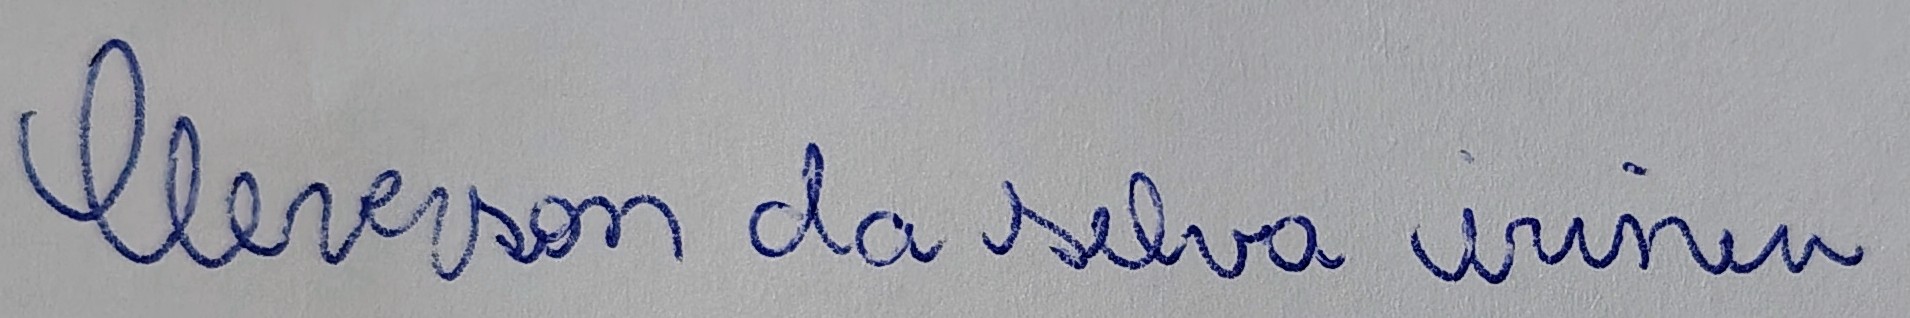 Cleverson da selva irineu